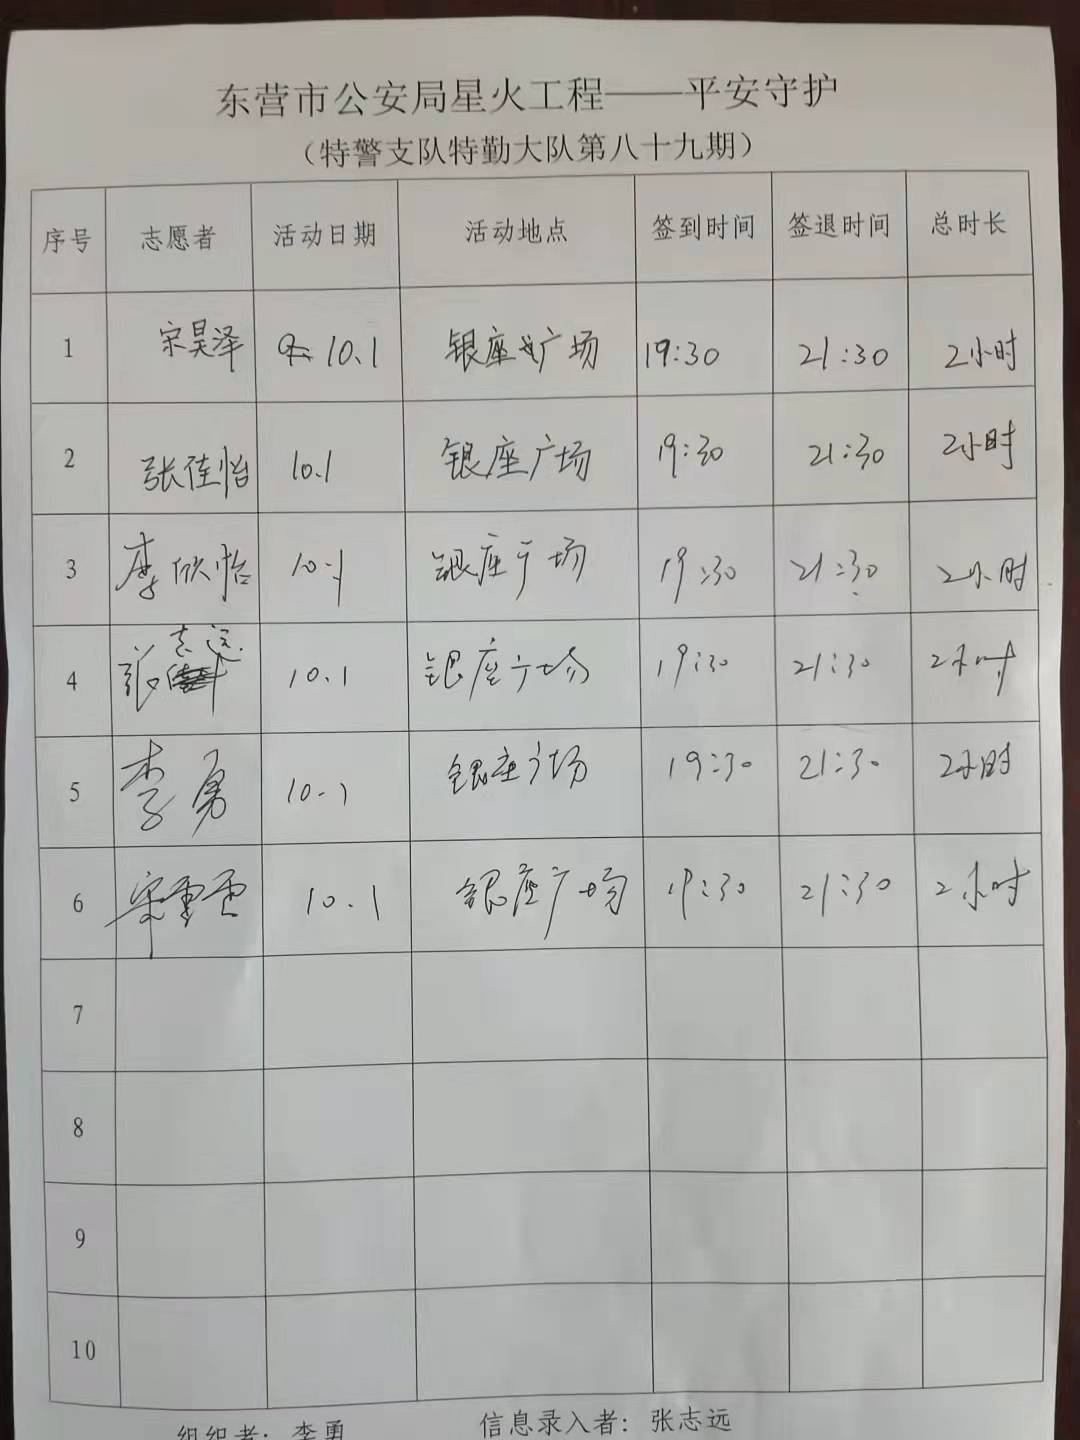 东营市公安局星火工程——平安守护
（特警支队特勤大队第八十九期）
序号 志愿者 活动日期 活动地点 签到时间 签退时间 总时长
1 宋昊泽 10.1 银座广场 19:30 21:30 2小时
2 张佳怡 10.1 银座广场 19:30 21:30 2小时
3 李欣怡 10.1 银座广场 19:30 21:30 2小时
4 张志远 10.1 银座广场 19:30 21:30 2小时
5 李勇 10.1 银座广场 19:30 21:30 2小时
6 宋 10.1 银座广场 19:30 21:30 2小时
7
8
9
10
组织者：李勇 信息录入者：张志远